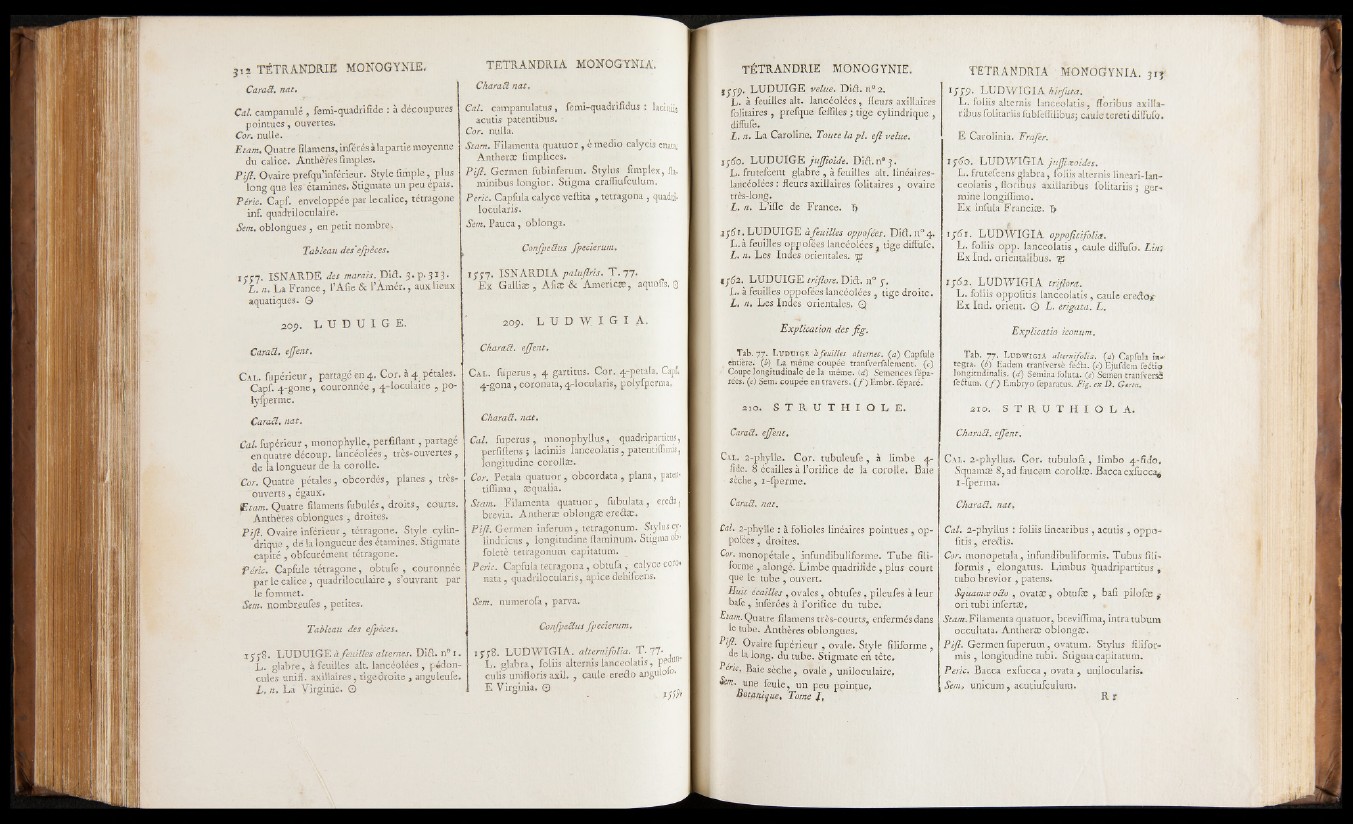 312 TÉTRANDRIE MONOGYNIE.
Caract. nat.
Cal. campanulé, ſemi-quadrifide : à découpures
pointues, ouvertes.
Cor. nulle.
Etam. Quatre filamens, inſérés à la partie moyenne
du calice. Anthères ſimples.
Piſt. Ovaire preſqu'inférieur. Style ſimple, plus
long que les étamines. Stigmate un peu épais.
Péric. Capſ. enveloppée par le calice, tétragone
inf. quadriloculaire.
Sem. oblongues, en petit nombre.
Tableau des eſpèces.
1557. ISNARDE des marais. Dict. 3. p. 313.
L. n. La France, l'Aſie & l'Amér., aux lieux
aquatiques. ☉
209. LUDUIGE.
Caract. eſſent.
CAL. ſupérieur, partagé en 4. Cor. à 4 pétales.
Capſ. 4-gone, couronnée, 4-loculaire, po-
lyſperme.
Caract. nat.
Cal. ſupérieur, monophylle, perſiſtant, partagé
en quatre découp. lancéolées, très-ouvertes,
de la longueur de la corolle.
Cor. Quatre pétales, obcordés, planes, très-
ouverts, égaux.
Etam. Quatre filamens ſubulés, droits, courts.
Anthères oblongues, droites.
Piſt. Ovaire inférieur, tétragone. Style cylin-
drique, de la longueur des étamines. Stigmate
capité, obſcurément tétragone.
Péric. Capſule tétragone, obtuſe, couronnée
par le calice, quadriloculaire, s'ouvrant par
le ſommet.
Sem. nombreuſes, petites.
Tableau des eſpèces.
1558. LUDUIGE à feuilles alternes. Dict. n° 1.
L. glabre, à feuilles alt. lancéolées, pédon-
cules unifl. axillaires, tige droite, anguleuſe.
L. n. La Virginie. ☉
TETRANDRIA MONOGYNIA.
Charact. nat.
Cal. campanulatus, ſemi-quadrifidus : laciniis
acutis patentibus.
Cor. nulla.
Stam. Filamenta quatuor, è medio calycis enata.
Antheræ ſimplices.
Piſt. Germen ſubinferum. Stylus ſimplex, ſta-
minibus longior. Stigma craſſiuſculum.
Peric. Capſula calyce veſtita, tetragona, quadri-
locularis.
Sem. Pauca, oblonga.
Conſpectus ſpecierum.
1557. ISNARDIA paluſtris. T. 77.
Ex Galliæ, Aſiæ & Americæ, aquoſis. ☉
209. LUDWIGIA.
Charact. eſſent.
CAL. ſuperus, 4 partitus. Cor. 4-petala. Capſ.
4-gona, coronata, 4-locularis, polyſperma.
Charact. nat.
Cal. ſuperus, monophyllus, quadripartitus,
perſiſtens; laciniis lanceolatis, patentiſſimis,
longitudine corollæ.
Cor. Petala quatuor, obcordata, plana, paten-
tiſſima, æqualia.
Stam. Filamenta quatuor, ſubulata, erecta,
brevia. Antheræ oblongæ erectæ.
Piſt. Germen inferum, tetragonum. Stylus cy-
lindricus, longitudine ſtaminum. Stigma ob-
ſoletè tetragonum capitatum.
Peric. Capſula tetragona, obtuſa, calyce coro-
nata, quadrilocularis, apice dehiſcens.
Sem. numeroſa, parva.
Conſpectus ſpecierum.
1558. LUDWIGIA. alternifolia. T. 77.
L. glabra, foliis alternis lanceolatis, pedun-
culis unifloris axil., caule erecto anguloſo.
E Virginia. ☉
1559.
TÉTRANDRIE MONOGYNIE.
1559. LUDUIGE velue. Dict. n° 2.
L. à feuilles alt. lancéolées, fleurs axillaires
ſolitaires, preſque ſeſſiles; tige cylindrique,
diffuſe.
L. n. La Caroline. Toute la pl. eſt velue.
1560. LUDUIGE juſſioide. Dict. n° 3.
L. fruteſcent glabre, à feuilles alt. linéaires-
lancéolées : fleurs axillaires ſolitaires, ovaire
très-long.
L. n. L'iſle de France. ♄
1561. LUDUIGE à feuilles oppoſées. Dict. n° 4.
L. à feuilles oppoſées lancéolées, tige diffuſe.
L. n. Les Indes orientales. ♃
1562. LUDUIGE triflore. Dict. n° 5.
L. à feuilles oppoſées lancéolées, tige droite.
L. n. Les Indes orientales. ☉
Explication des fig.
Tab. 77. LUDUIGE à feuilles alternes. (a) Capſule
entière. (b) La même coupée tranſverſalement. (c)
Coupe longitudinale de la même. (d) Semences ſépa-
rées. (e) Sem. coupée en travers. (f) Embr. ſéparé.
210. STRUTHIOLE.
Caract. eſſent.
CAL. 2-phylle. Cor. tubuleuſe, à limbe 4-
fide. 8 écailles à l'orifice de la corolle. Baie
sèche, 1-ſperme.
Caract. nat.
Cal. 2-phylle : à folioles linéaires pointues, op-
poſées, droites.
Cor. monopétale, infundibuliforme. Tube fili-
forme, alongé. Limbe quadrifide, plus court
que le tube, ouvert.
Huit écailles, ovales, obtuſes, pileuſes à leur
baſe, inſérées à l'orifice du tube.
Etam. Quatre filamens très-courts, enfermés dans
le tube. Anthères oblongues.
Piſt. Ovaire ſupérieur, ovale. Style filiforme,
de la long. du tube. Stigmate en tête.
Péric. Baie sèche, ovale, uniloculaire.
Sem. une ſeule, un peu pointue,
Botanique. Tome I.
TETRANDRIA MONOGYNIA. 313
1559. LUDWIGIA hirſuta.
L. foliis alternis lanceolatis, floribus axilla-
ribus ſolitariis ſubſeſſilibus; caule tereti diffuſo.
E Carolinia. Fraſer.
1560. LUDWIGIA juſſiæoides.
L. fruteſcens glabra, foliis alternis lineari-lan-
ceolatis, floribus axillaribus ſolitariis; ger-
mine longiſſimo.
Ex inſula Franciæ. ♄
1561. LUDWIGIA oppoſitifolia.
L. foliis opp. lanceolatis, caule diffuſo. Lin.
Ex Ind. orientalibus. ♃
1562. LUDWIGIA triflora.
L. foliis oppoſitis lanceolatis, caule erecto.
Ex Ind. orient. ☉ L. erigata. L.
Explicatio iconum.
Tab. 77. LUDWIGIA alternifolia. (a) Capſula in-
tegra. (b) Eadem tranſverſè ſecta. (c) Ejuſdem ſectio
longitudinalis. (d) Semina ſoluta. (e) Semen tranſversè
ſectum. (f) Embryo ſeparatus. Fig. ex D. Gærtn.
210. STRUTHIOLA.
Charact. eſſent.
CAL. 2-phyllus. Cor. tubuloſa, limbo 4-fido.
Squamæ 8, ad faucem corollæ. Bacca exſucca,
1-ſperma.
Charact. nat.
Cal. 2-phyllus : foliis linearibus, acutis, oppo-
ſitis, erectis.
Cor. monopetala, infundibuliformis. Tubus fili-
formis, elongatus. Limbus quadripartitus,
tubo brevior, patens.
Squamæ octo, ovatæ, obtuſæ, baſi piloſæ,
ori tubi inſertæ.
Stam. Filamenta quatuor, breviſſima, intra tubum
occultata. Antheræ oblongæ.
Piſt. Germen ſuperum, ovatum. Stylus filifor-
mis, longitudine tubi. Stigma capitatum.
Peric. Bacca exſucca, ovata, unilocularis.
Sem. unicum, acutiuſculum.
R r